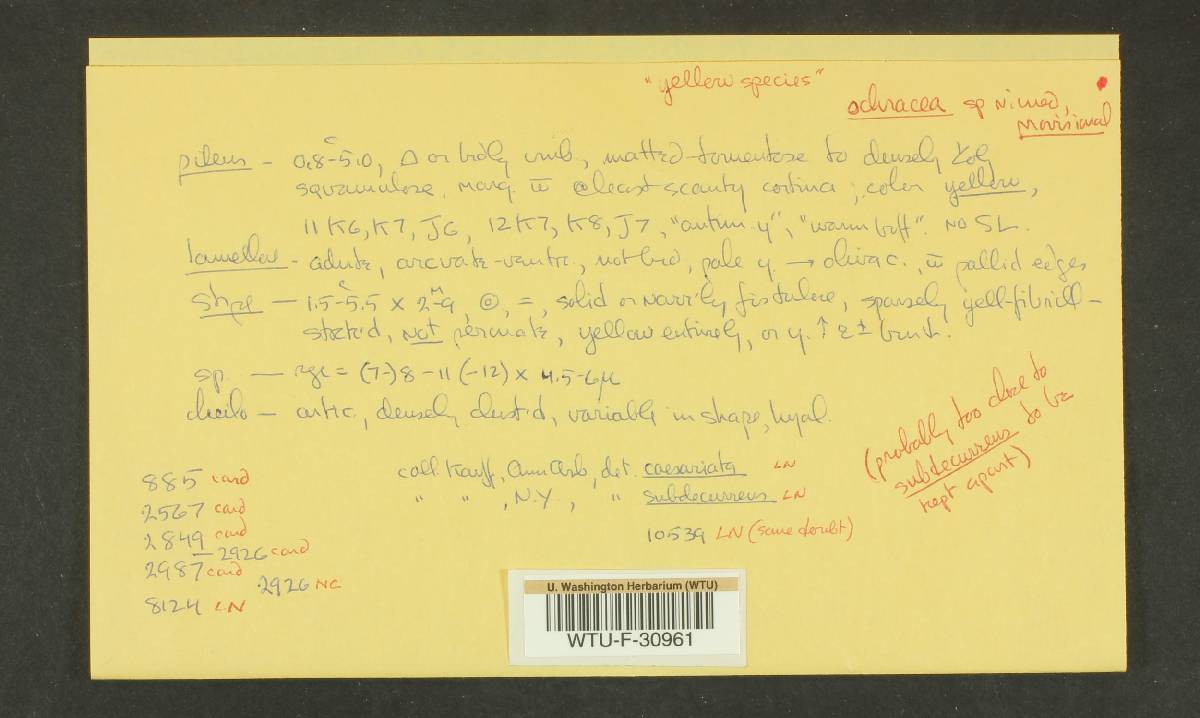 "yellow species"
ochracea sp nimed,
provisional
pileus - 0.8-5.0, Δ or brdly umb, matted-tomentose to densely
squamulose. marg. w̄ @least scanty cortina; color yellow,
11 K6, K7, J6, 12 K7, K8, J7, "antim. y", "warm buff". NO SL.
lamellae - adnate, arcuate-ventric., not brd, pale y. → olivac., w̄ pallid edges
Stipe - 1.5-5.5 x 2-9, ⊚, =, solid or narrily fistulose, sparsely yell-fibrill-
streak'd, not peronate, yellow entirely, or y. ↑ & ± brunt.
sp. - rge = (7-)8-11(-12) x 4.5-6μ
cheilo - artic., densely clust'd, variable in shape, hyal.
coll Kauff, Ann Arb, det. caesariata LN
" " , N.Y , " subdecurrens LN
10539 LN (some doubt)
(probably too close to
subdecurrens to be
kept apart)
885 card
2567 card
2849 card
- 2926 card
2987 card
2926 NC
8124 LN
U. Washington Herbarium (WTU)
WTU-F-30961